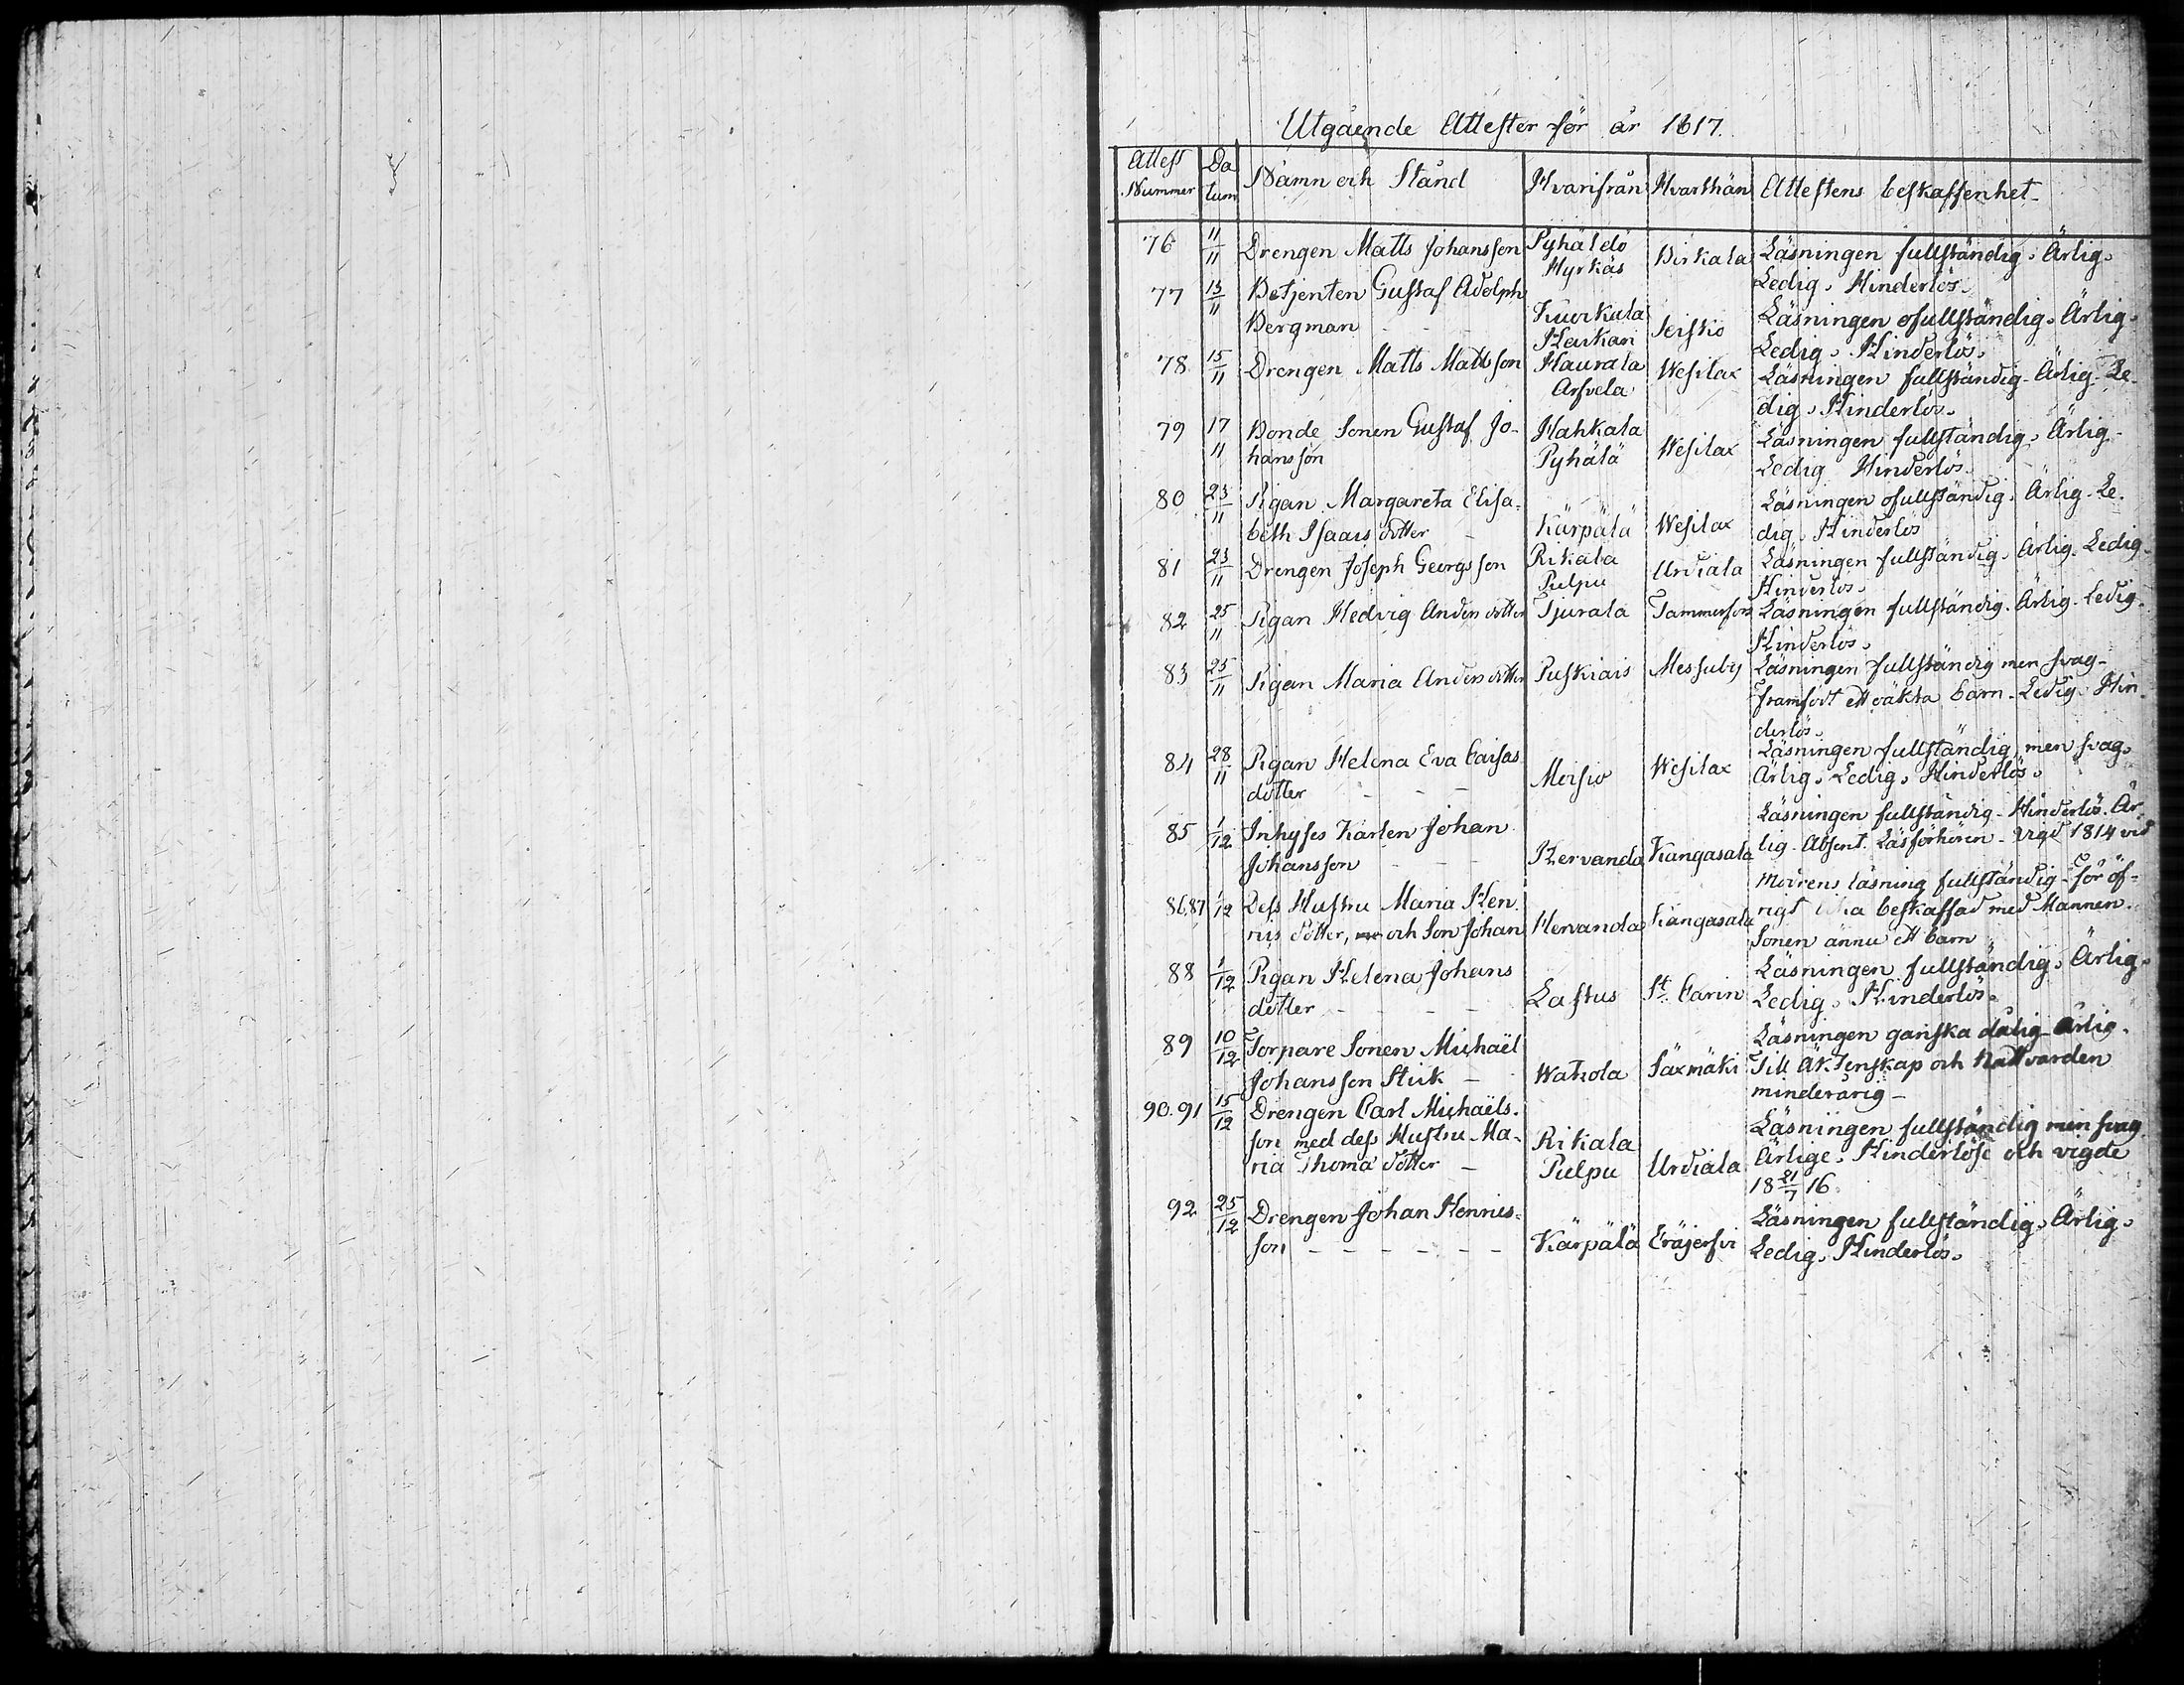 Utgående Attester för år 1817.
Attest Nummer
Da tum
Namn och Stånd
Hvarifrån
Hvarthän
Attestens beskaffenhet
76 11/11 Drengen Matts Johansson Pyhäldö Hyrkäs Birkala Läsningen fullständig. Ärlig.
Ledig. Hinderlös.
77 13/11 Betjenten Gustaf Adolph Kuurkala Läsningen ofullständig. Ärlig.
Bergman Heikari Ledig. Hinderlös.
78 15/11 Drengen Matts Mattsson Haurala Wesilax Läsningen fullständig. Ärlig. Le-
Arfvela dig. Hinderlös.
79 17/11 Bonde Sonen Gustaf Jo- Hahkala Wesilax Läsningen fullständig. Ärlig.
hansson Pyhälä Ledig Hinderlös.
80 23/11 Pigan Margareta Elisa- Läsningen ofullständig. Ärlig. Le-
beth Isaacs dotter Kärpälä Wesilax dig. Hinderlös
81 23/11 Drengen Joseph Georgsson Rikala Urdiala Läsningen fullständig. Ärlig. Ledig.
Pulpu Hinderlös.
82 25/11 Pigan Hedvig Anders dotter Tjurala Tammerfors Läsningen fullständig. Ärlig. Ledig.
Hinderlös.
83 25/11 Pigan Maria Anders dotter Puskiais Messuby Läsningen fullständig men svag.
framfödt ett oäkta barn. Ledig. Hin-
derlös.
84 28/11 Pigan Helena Eva Caisas Moisio Wesilax Läsningen fullständig, men svag.
dotter - - - Ärlig. Ledig. Hinderlös.
85 1/12 Inhyses Karlen Johan Läsningen fullständig. Hinderlös. Är-
Johansson - - - Hervanda Kangasala lig. Absent. Läsförhören. Vigd 1814 vid
86,87 1/12 Dess Hustru Maria Hen- Hervanda Kangasala Modrens läsning fullständig. för öf-
ris dotter, och Son Johan rigt lika beskaffad med Mannen.
Sonen ännu ett barn
88 1/12 Pigan Helena Johans Läsningen fullständig. Ärlig.
dotter - - - Lastus St. Carin Ledig. Hinderlös.
89 10/12 Torpare Sonen Michaël Läsningen ganska dålig. Ärlig.
Johansson Stick - Wahola Säxmäki Till Äktenskap och Nattvarden
minderårig -
90.91 15/12 Drengen Carl Michaëls- Läsningen fullständig men svag.
son med dess Hustru Ma- Rikala Ärlige. Hinderlöse och vigde
ria Thomæ dotter - Pulpu Urdiala 18 21/7 16.
92 25/12 Drengen Johan Henrics- Läsningen fullständig. Ärlig.
son - - - - - - Kärpälä Eräjerfvi Ledig. Hinderlös.